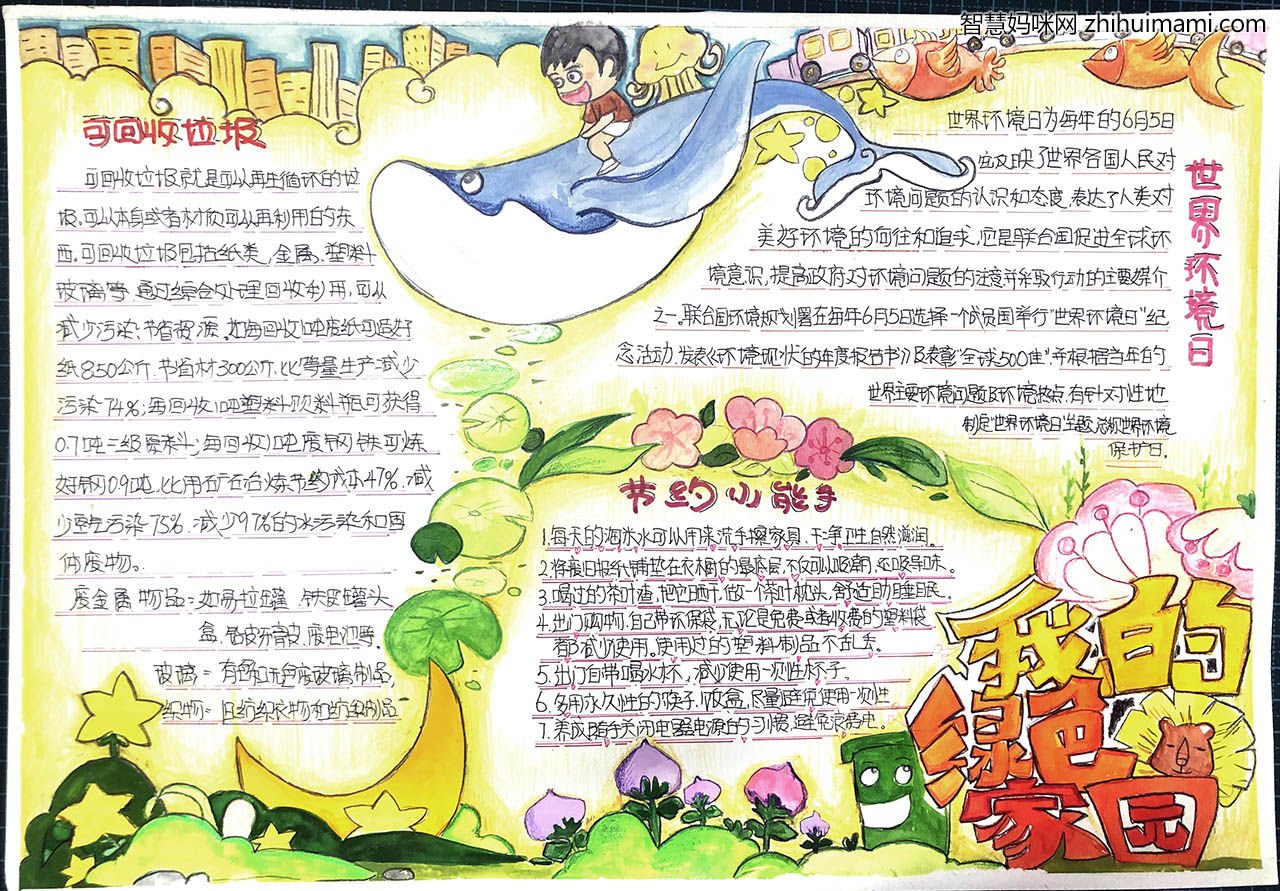 智慧妈咪网 zhihuimami.com
可回收垃圾
可回收垃圾就是可以再生循环的垃
圾.可以本身或者材质可以再利用的东
西.可回收垃圾包括纸类,金属.塑料
玻璃等.通过综合处理回收利用,可以
减少污染.节省资源.如每回收1吨废纸可造好
纸850公斤.节省材300公斤.比等量生产减少
污染74%;每回收1吨塑料饮料瓶可获得
0.7吨二级原料;每回收1吨废钢铁可炼
好钢0.9吨.比用矿石冶炼节约成本47%.减
少空气污染75%.减少97%的水污染和固
体废物。
废金属物品=如易拉罐.铁皮罐头
盒.铅皮牙膏皮.废电池等。
玻璃=有色和无色废玻璃制品,
织物=旧纺织衣物和纺织制品
世界环境日
世界环境日为每年的6月5日
它反映了世界各国人民对
环境问题的认识和态度.表达了人类对
美好环境的向往和追求.它是联合国促进全球环
境意识,提高政府对环境问题的注意并采取行动的主要媒介
之一。联合国环境规划署在每年6月5日选择一个成员国举行“世界环境日”纪
念活动.发表《环境现状的年度报告书》及表彰“全球500佳”并根据当年的
世界主要环境问题及环境热点.有针对性地
制定世界环境日主题.总称世界环境
保护日.
节约小能手
1.每天的淘米水可以用来洗手擦家具.干净卫生自然滋润。
2.将废旧报纸铺垫在衣橱的最底层,不仅可以吸潮,还吸异味。
3.喝过的茶叶渣,把它晒干.做一个茶叶枕头,舒适助睡眠。
4.出门购物.自己带环保袋,无论是免费或者收费的塑料袋
都减少使用.使用过的塑料制品不乱丢。
5.出门自带喝水杯.减少使用一次性杯子。
6.多用永久性的筷子.饭盒.尽量避免使用一次性
7.养成随手关闭电器电源的习惯.避免浪费电。
我的
绿色
家园